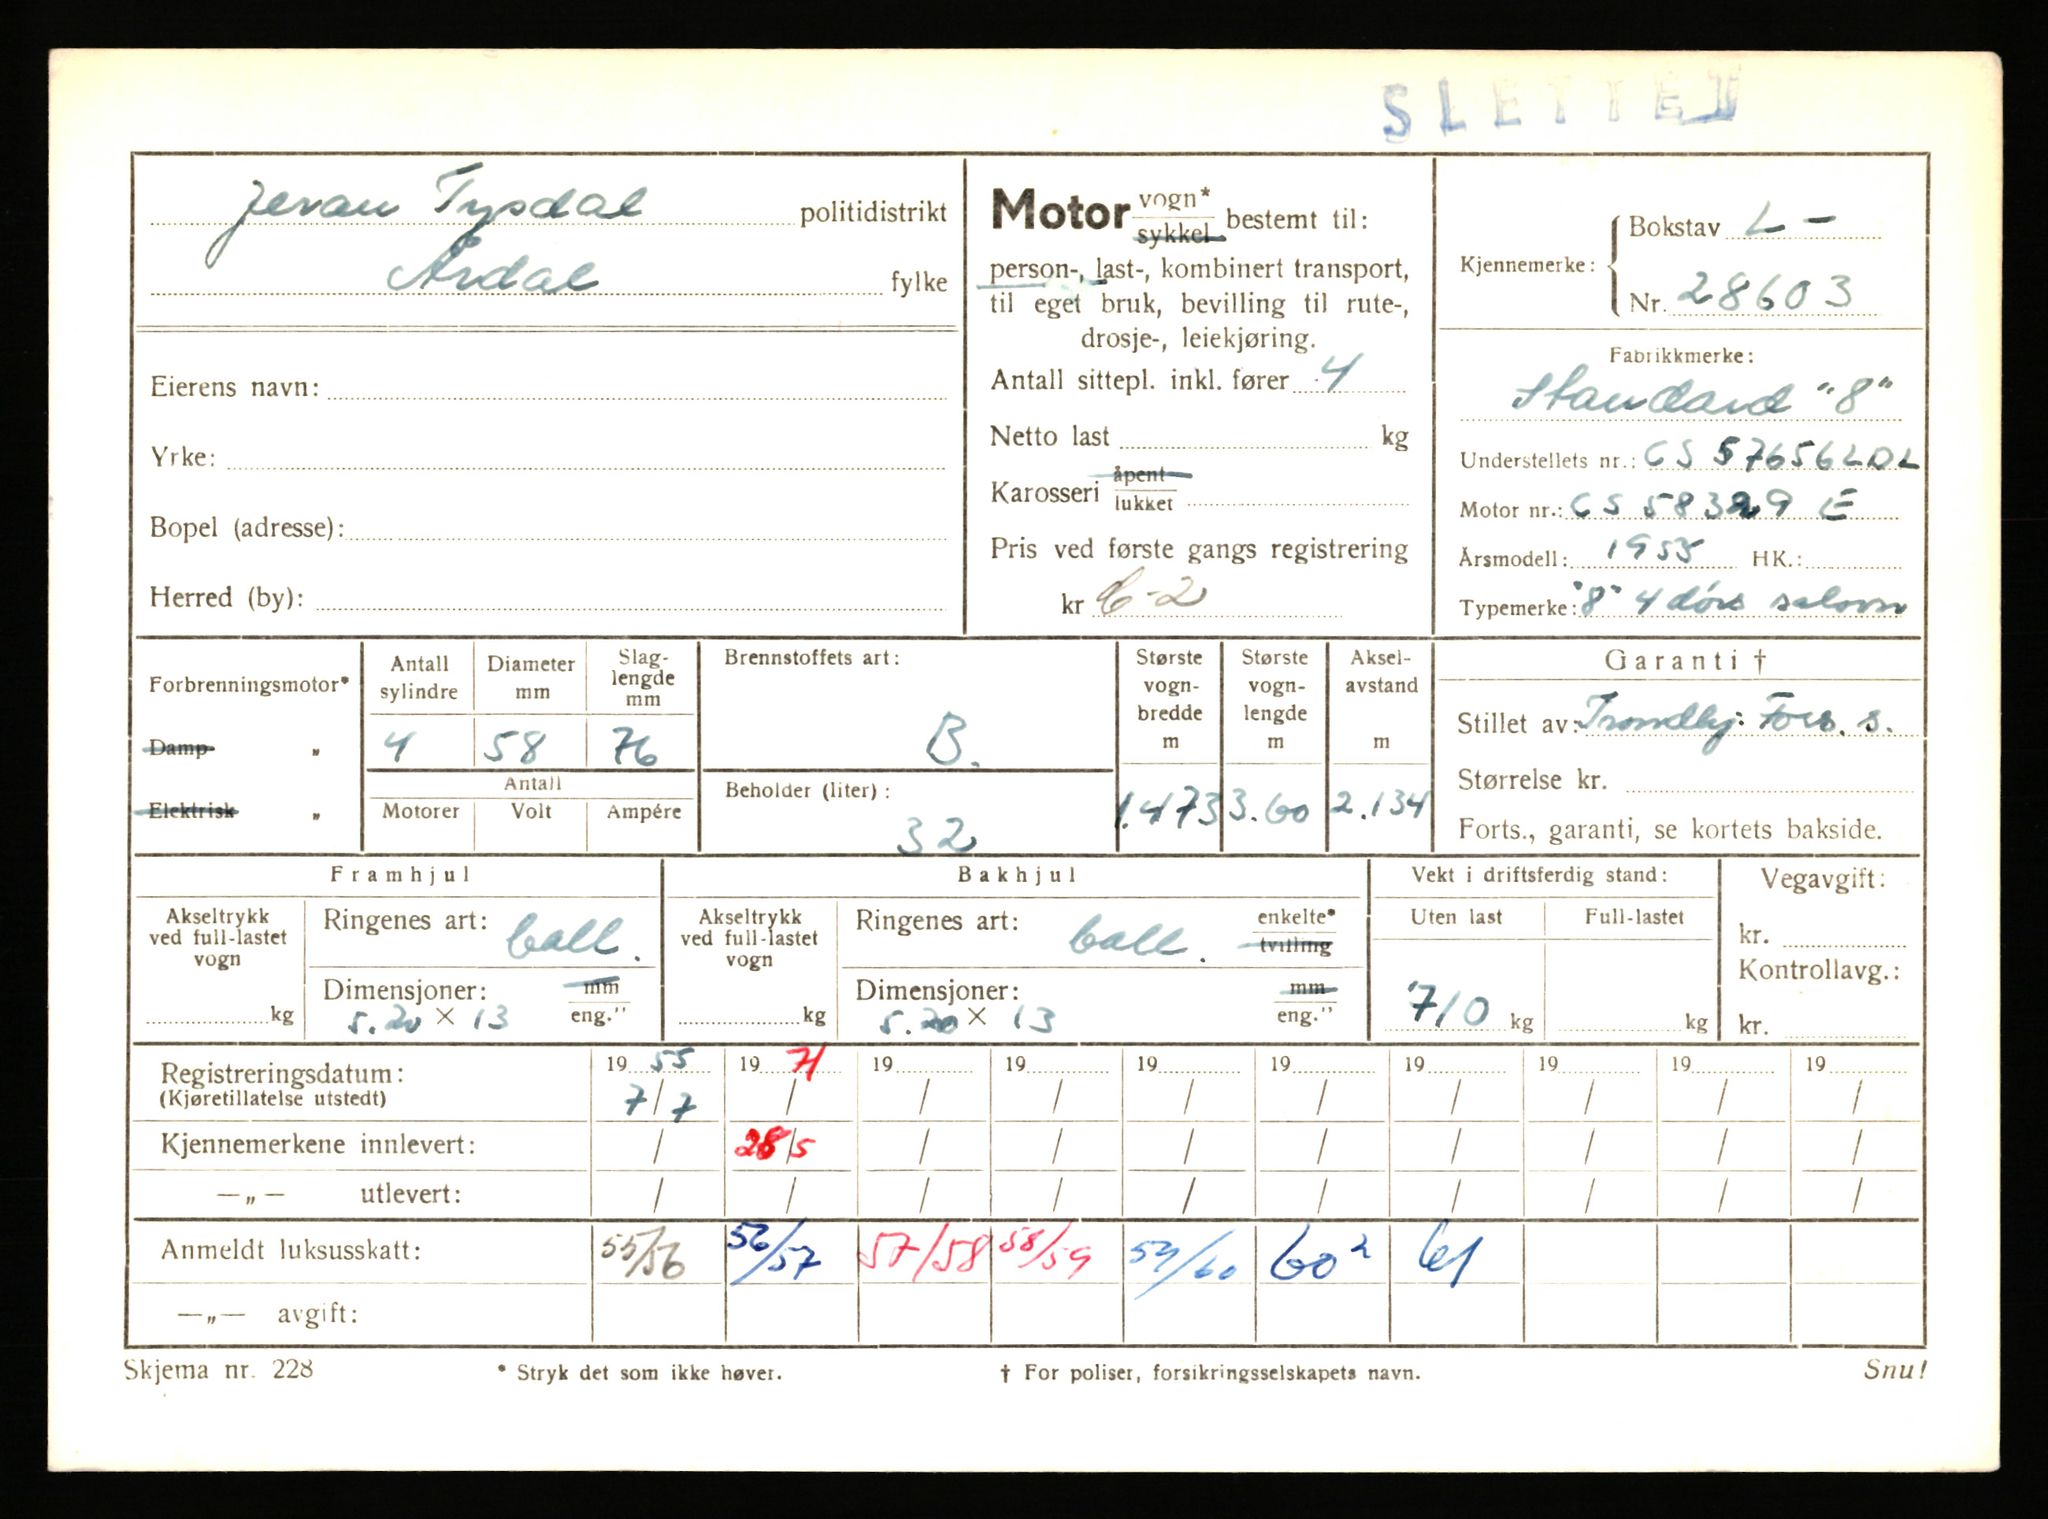 SLETTET
Jevan Tysdal politidistrikt
Årdal fylke
Eierens navn:
Yrke:
Bopel (adresse):
Herred (by):
Motor vogn* sykkel bestemt til:
person-, last-, kombinert transport,
til eget bruk, bevilling til rute-,
drosje-, leiekjøring.
Antall sittepl. inkl. fører 4
Netto last kg
Karosseri åpent lukket
Pris ved første gangs registrering
kr C-2
Kjennemerke: Bokstav L-
Nr. 28603
Fabrikkmerke:
Standard "8"
Understellets nr.: CS 57656LDL
Motor nr.: CS 58329 E
Årsmodell: 1955 HK.:
Typemerke: "8" 4 dørs saloon
Forbrenningsmotor*
Damp "
Elektrisk "
Antall sylindre
4
Diameter mm
58
Slag-
lengde
mm
76
Antall
Motorer Volt Ampére
Brennstoffets art:
B.
Beholder (liter):
32
Største
vogn-
bredde
m
1.473
Største
vogn-
lengde
m
3.60
Aksel-
avstand
m
2.134
Garanti †
Stillet av: Trondhj. Fors. s.
Størrelse kr.
Forts., garanti, se kortets bakside.
Framhjul
Akseltrykk
ved full-lastet
vogn
kg
Ringenes art: ball.
Dimensjoner: mm eng."
5.20 × 13
Bakhjul
Akseltrykk
ved full-lastet
vogn
kg
Ringenes art: ball. enkelte* tvilling
Dimensjoner: mm eng."
5.20 × 13
Vekt i driftsferdig stand:
Uten last Full-lastet
710 kg kg
Vegavgift:
kr.
Kontrollavg.:
kr.
Registreringsdatum: 19 55 19 71 19 19 19 19 19 19 19 19
(Kjøretillatelse utstedt) 7/7 / / / / / / / / /
Kjennemerkene innlevert: / 28/5 / / / / / / / /
—„— utlevert: / / / / / / / / / /
Anmeldt luksusskatt: 55/56 56/57 57/58 58/59 59/60 60² 61
—„— avgift:
Skjema nr. 228 * Stryk det som ikke høver. † For poliser, forsikringsselskapets navn. Snu!